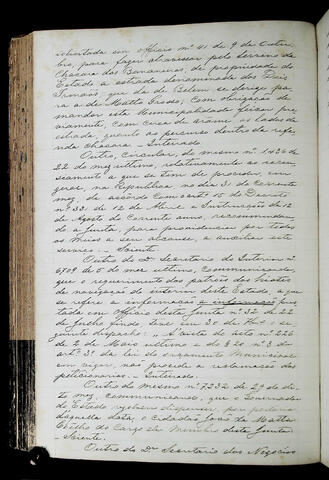 solicitada em officio nº 41 de 9 de Outu-
bro, para fazer atravessar pelo terreno da
Chacara das Bananeiras, de propriedade do
Estado a estrada denominada dos Dois
Irmãos, que da de Belem se dirige pa-
ra a de Matto Grosso, com obrigação de
mandar esta Municipalidade fechar pre-
viamente, com cerca de arame, os lados da
estrada, quanto ao percurso dentro da refe-
rida chacara. - Inteirado
Outro, Circular, do mesmo nº 1426 de
22 de mez ultimo, relativamente ao recen-
seamento a que se tem de proceder, em
geral, na Republica, no dia 31 do corrente
mez de accordo com o art. 15 do Decreto
nº 33 de 12 de Abril e Instrucções de 12
de Agosto do corrente anno, recommendan-
do a Junta, para providenciar por todos
os meios a seu alcance, a auxiliar este
serviço. - Sciente.
Outro do Dr. Secretario do Interior nº
6709 de 5 de mez ultimo, communicando,
que o requerimento dos patrões dos
de navegação do Estado, a que
se refere a informação a informação pres-
tada em officio desta Junta nº 32 de 22
de Junho findo teve em 30 de o se-
guinte despacho: A vista do acto nº 226
de 2 de Maio ultimo e do § 20 nº 3 do
artº 3º da lei do orçamento Municipal
em vigor, não procede a reclamação dos
peticionarios. - Inteirado.
Outro do mesmo nº 7232 de 29 de di-
to mez, communicando, que o Governador
do Estado, resolveu dispensar, por portaria
daquella data, o cidadão João da Matta
Coelho do cargo de Membro desta Junta
- Sciente.
Outro do Dr. Secretario dos Negocios